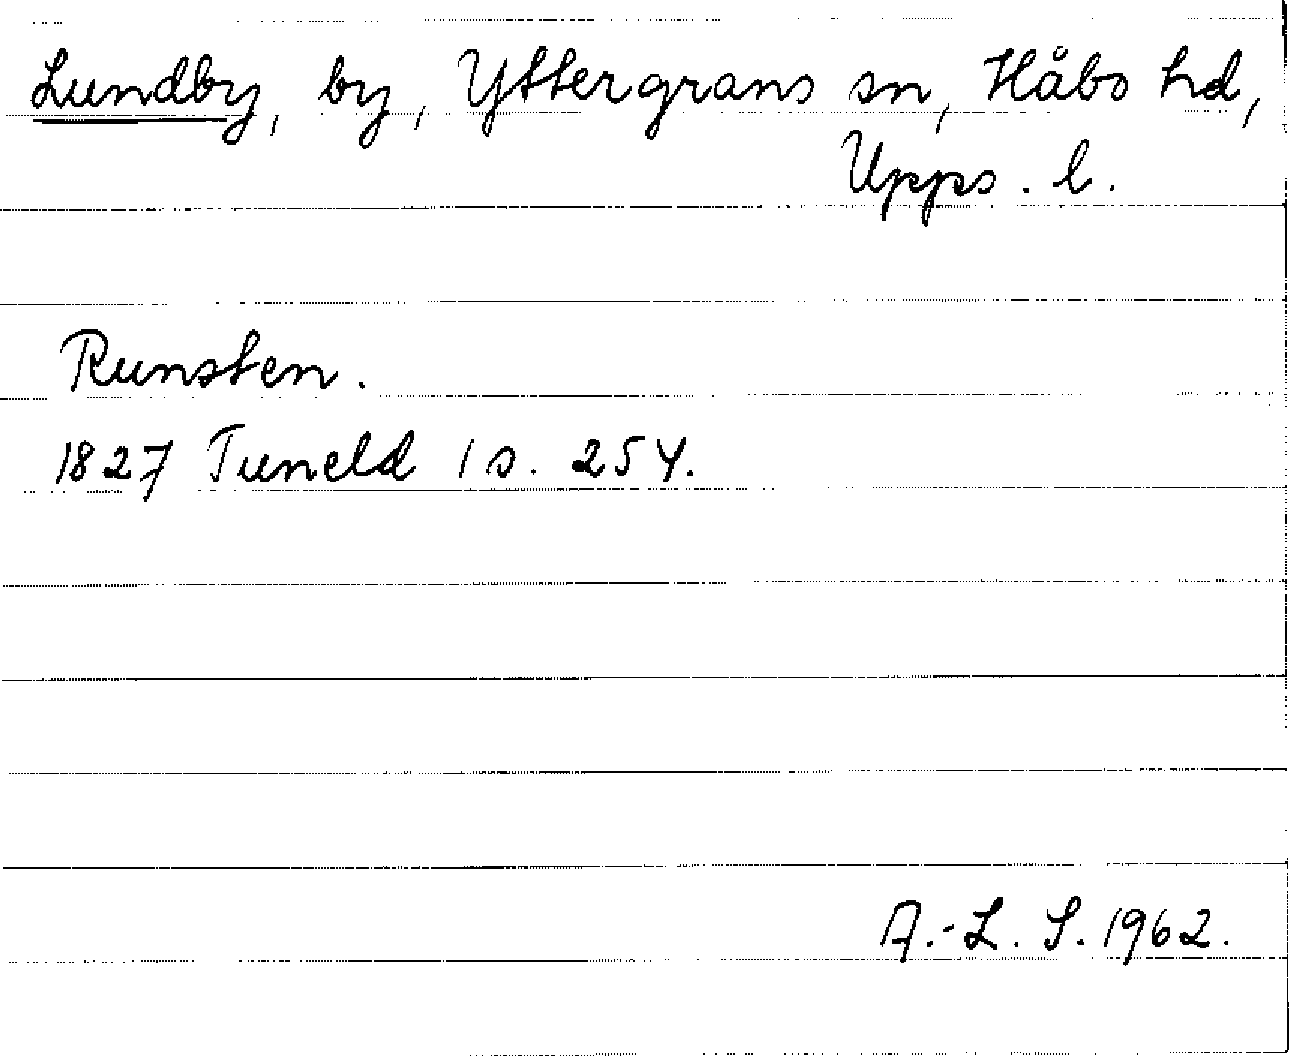 Lundby, by, Yttergrans sn, Håbo hd,
Upps. l.
Runsten.
1827 Tuneld 1 s. 254.
A.-L. S. 1962.